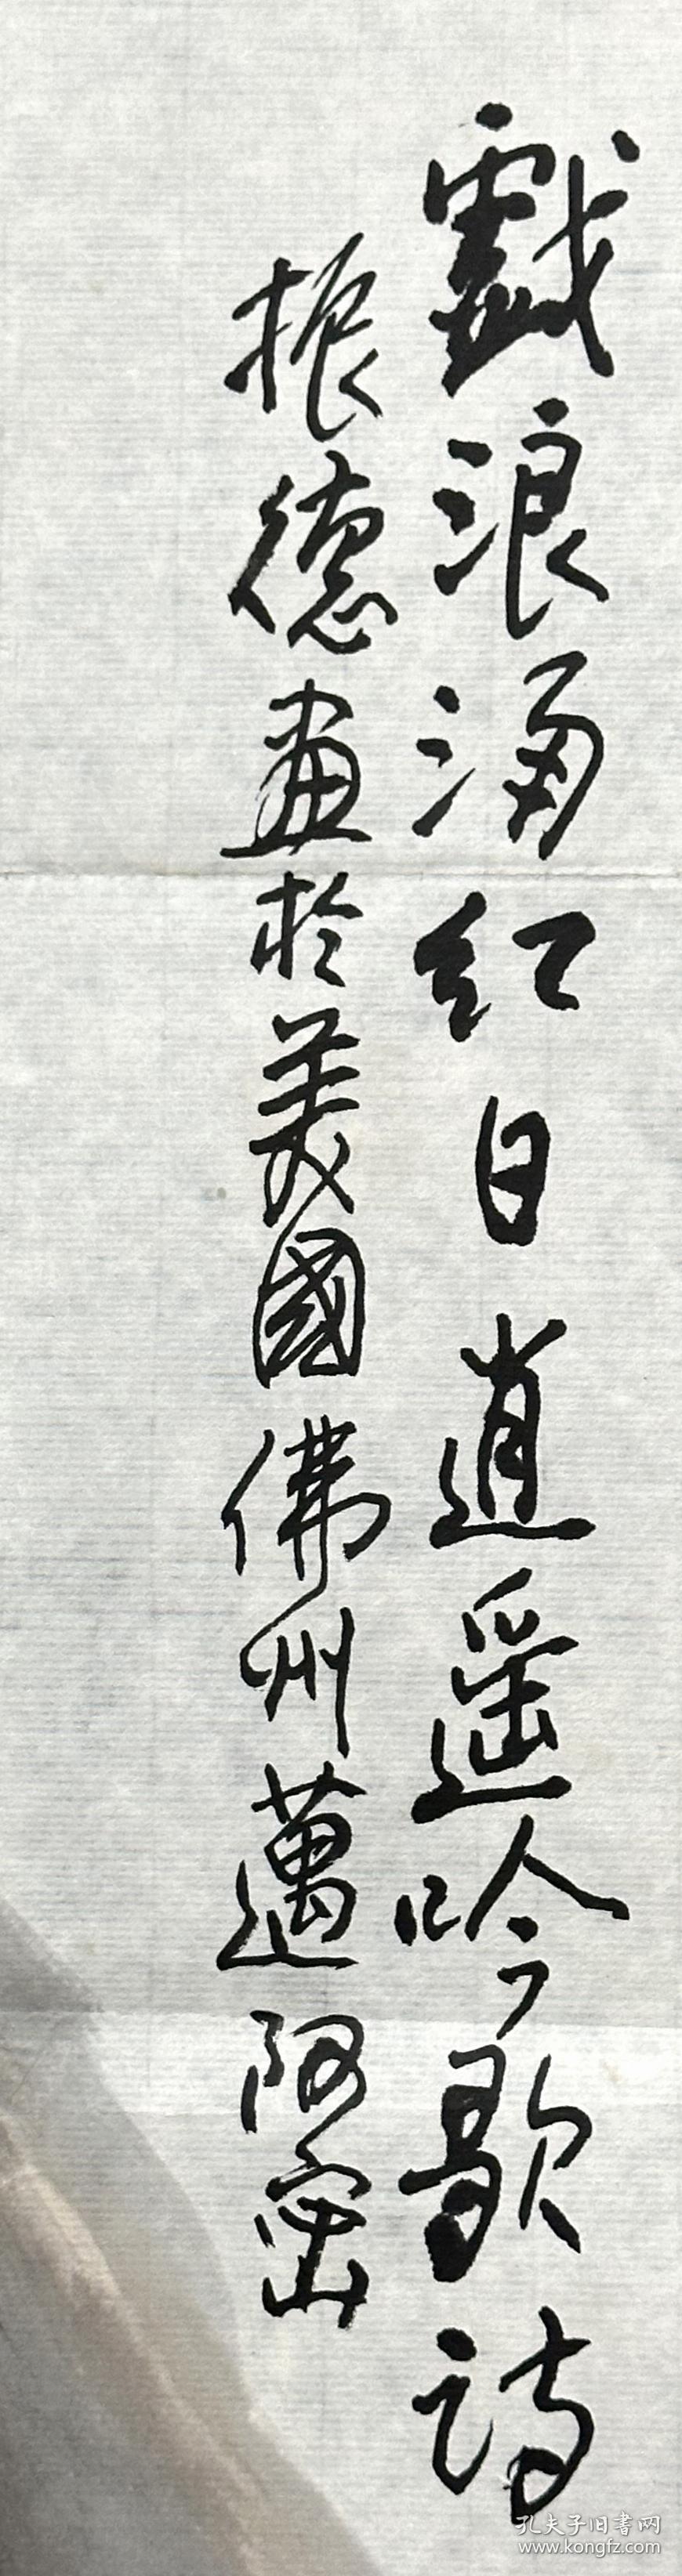 戲浪涌紅日逍遥吟歌詩
振德畫於美國佛州邁阿密
孔夫子旧書网
www.kongfz.com